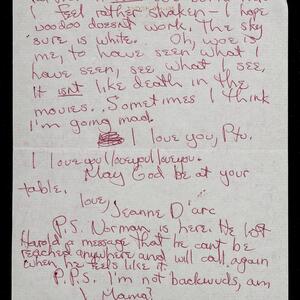 I feel rather shaken — I hope
voodoo doesnt work. The sky
sure is white. Oh, woe is
me, to have seen what I
have seen, see what I see.
It isnt like death in the
movies. Sometimes I think
I'm going mad.
I love you, Ptv.
I love you Iloveyou Iloveyou.
May God be at your
table.
love,
Jeanne D'arc
P.S. Norman is here. He left
Harold a message that he can't be
reached anywhere and will call again
when he feels like it.
P.P.S. I'm not backwuds, am
I, Mama?